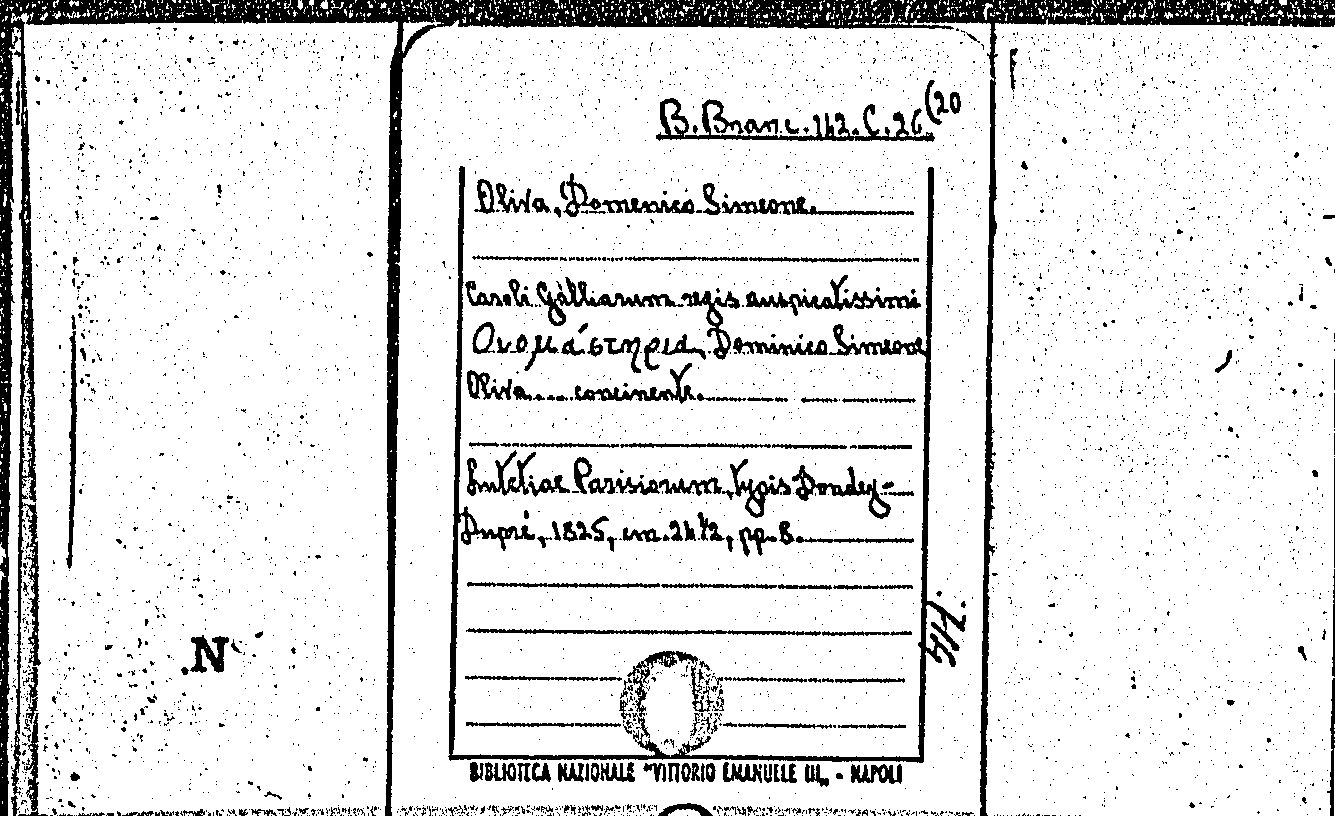 B. Branc. 142. C. 26 (20
Oliva, Domenico Simeone.
Caroli Galliarum regis auspicatissimi
Ονομάστηρια, Dominico Simeone
Oliva.... concinente.
Lutetiae Parisiorum, typis Dondey-
Dupré, 1825, cm. 24 1/2, pp. 8.
BIBLIOTECA NAZIONALE "VITTORIO EMANUELE III„ - NAPOLI
.N